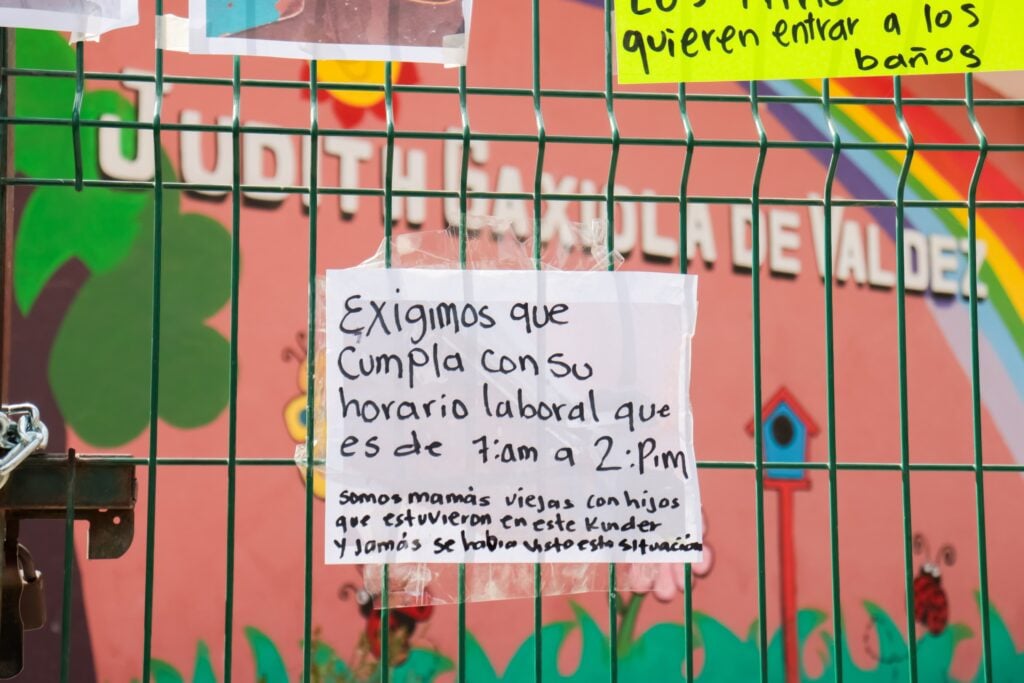 quieren entrar a los
baños
JUDITH GAXIOLA DE VALDEZ
Exigimos que
Cumpla con su
horario laboral que
es de 7:am a 2:pim
somos mamás viejas con hijos
que estuvieron en este Kinder
y jamás se habia visto esto situación